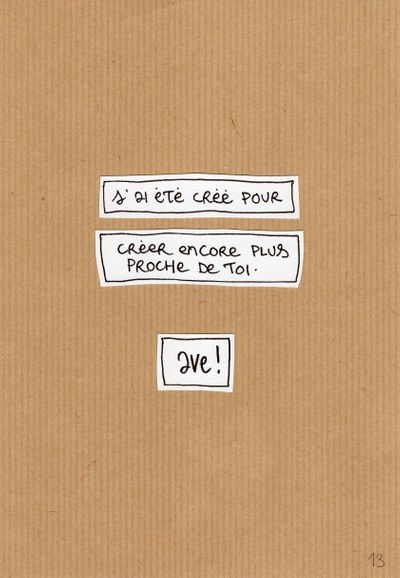 J'ai été créé pour
créer encore plus
proche de toi.
ave!
13